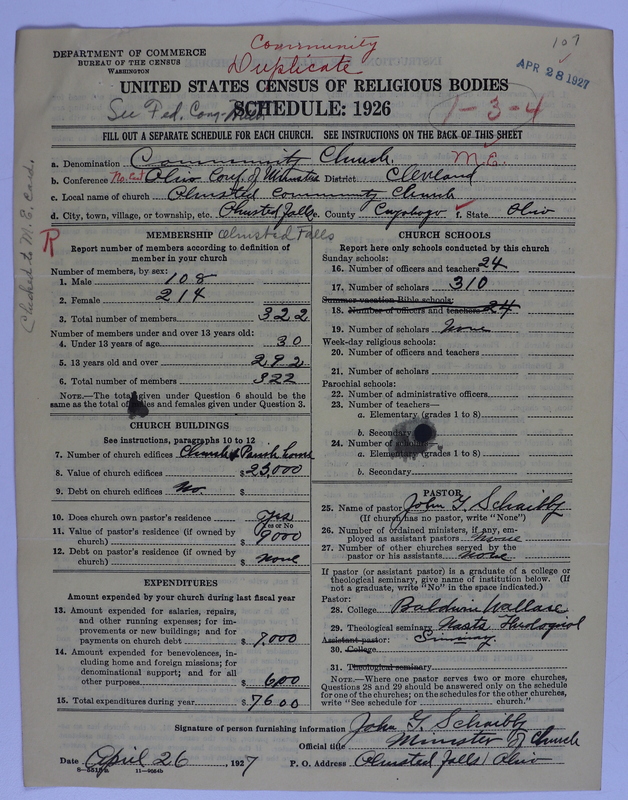 107
Community
Duplicate
APR 28 1927
DEPARTMENT OF COMMERCE
BUREAU OF THE CENSUS
WASHINGTON
UNITED STATES CENSUS OF RELIGIOUS BODIES
See Fed. Cong.
SCHEDULE: 1926
1-3-4
FILL OUT A SEPARATE SCHEDULE FOR EACH CHURCH. SEE INSTRUCTIONS ON THE BACK OF THIS SHEET
a. Denomination Community Church. M.E.
b. Conference Ohio Conf. of Ministers District Cleveland
c. Local name of church Olmsted Community Church
d. City, town, village, or township, etc. Olmsted Falls e. County Cuyahoga f. State Ohio
Checked to M.E. card.
R
MEMBERSHIP Olmsted Falls
Report number of members according to definition of
member in your church
Number of members, by sex:
1. Male 108
2. Female 214
3. Total number of members 322
Number of members under and over 13 years old:
4. Under 13 years of age 30
5. 13 years old and over 292
6. Total number of members 322
NOTE.—The total given under Question 6 should be the
same as the total of males and females given under Question 3.
CHURCH BUILDINGS
See instructions, paragraphs 10 to 12
7. Number of church edifices Church & Parish house
8. Value of church edifices $25,000
9. Debt on church edifices No. $
10. Does church own pastor's residence Yes
Yes or No
11. Value of pastor's residence (if owned by
church) $9000
12. Debt on pastor's residence (if owned by
church) $none
EXPENDITURES
Amount expended by your church during last fiscal year
13. Amount expended for salaries, repairs,
and other running expenses; for im-
provements or new buildings; and for
payments on church debt $7,000
14. Amount expended for benevolences, in-
cluding home and foreign missions; for
denominational support; and for all
other purposes $600
15. Total expenditures during year $7600
CHURCH SCHOOLS
Report here only schools conducted by this church
Sunday schools:
16. Number of officers and teachers 24
17. Number of scholars 310
Summer vacation Bible schools:
18. Number of officers and teachers 24
19. Number of scholars None
Week-day religious schools:
20. Number of officers and teachers
21. Number of scholars
Parochial schools:
22. Number of administrative officers
23. Number of teachers—
a. Elementary (grades 1 to 8)
b. Secondary
24. Number of scholars—
a. Elementary (grades 1 to 8)
b. Secondary
PASTOR
25. Name of pastor John G. Schaibly
(If church has no pastor, write "None")
26. Number of ordained ministers, if any, em-
ployed as assistant pastors none
27. Number of other churches served by the
pastor or his assistants none
If pastor (or assistant pastor) is a graduate of a college or
theological seminary, give name of institution below. (If
not a graduate, write "No" in the space indicated.)
Pastor:
28. College Baldwin Wallace
29. Theological seminary Nasts Theological
Assistant pastor: Seminary.
30. College
31. Theological seminary
NOTE.—Where one pastor serves two or more churches,
Questions 28 and 29 should be answered only on the schedule
for one of the churches; on the schedules for the other churches,
write "See schedule for church."
Signature of person furnishing information John G. Schaibly
Official title Minister of Church
Date April 26, 1927 P. O. Address Olmsted Falls, Ohio
11—9684b